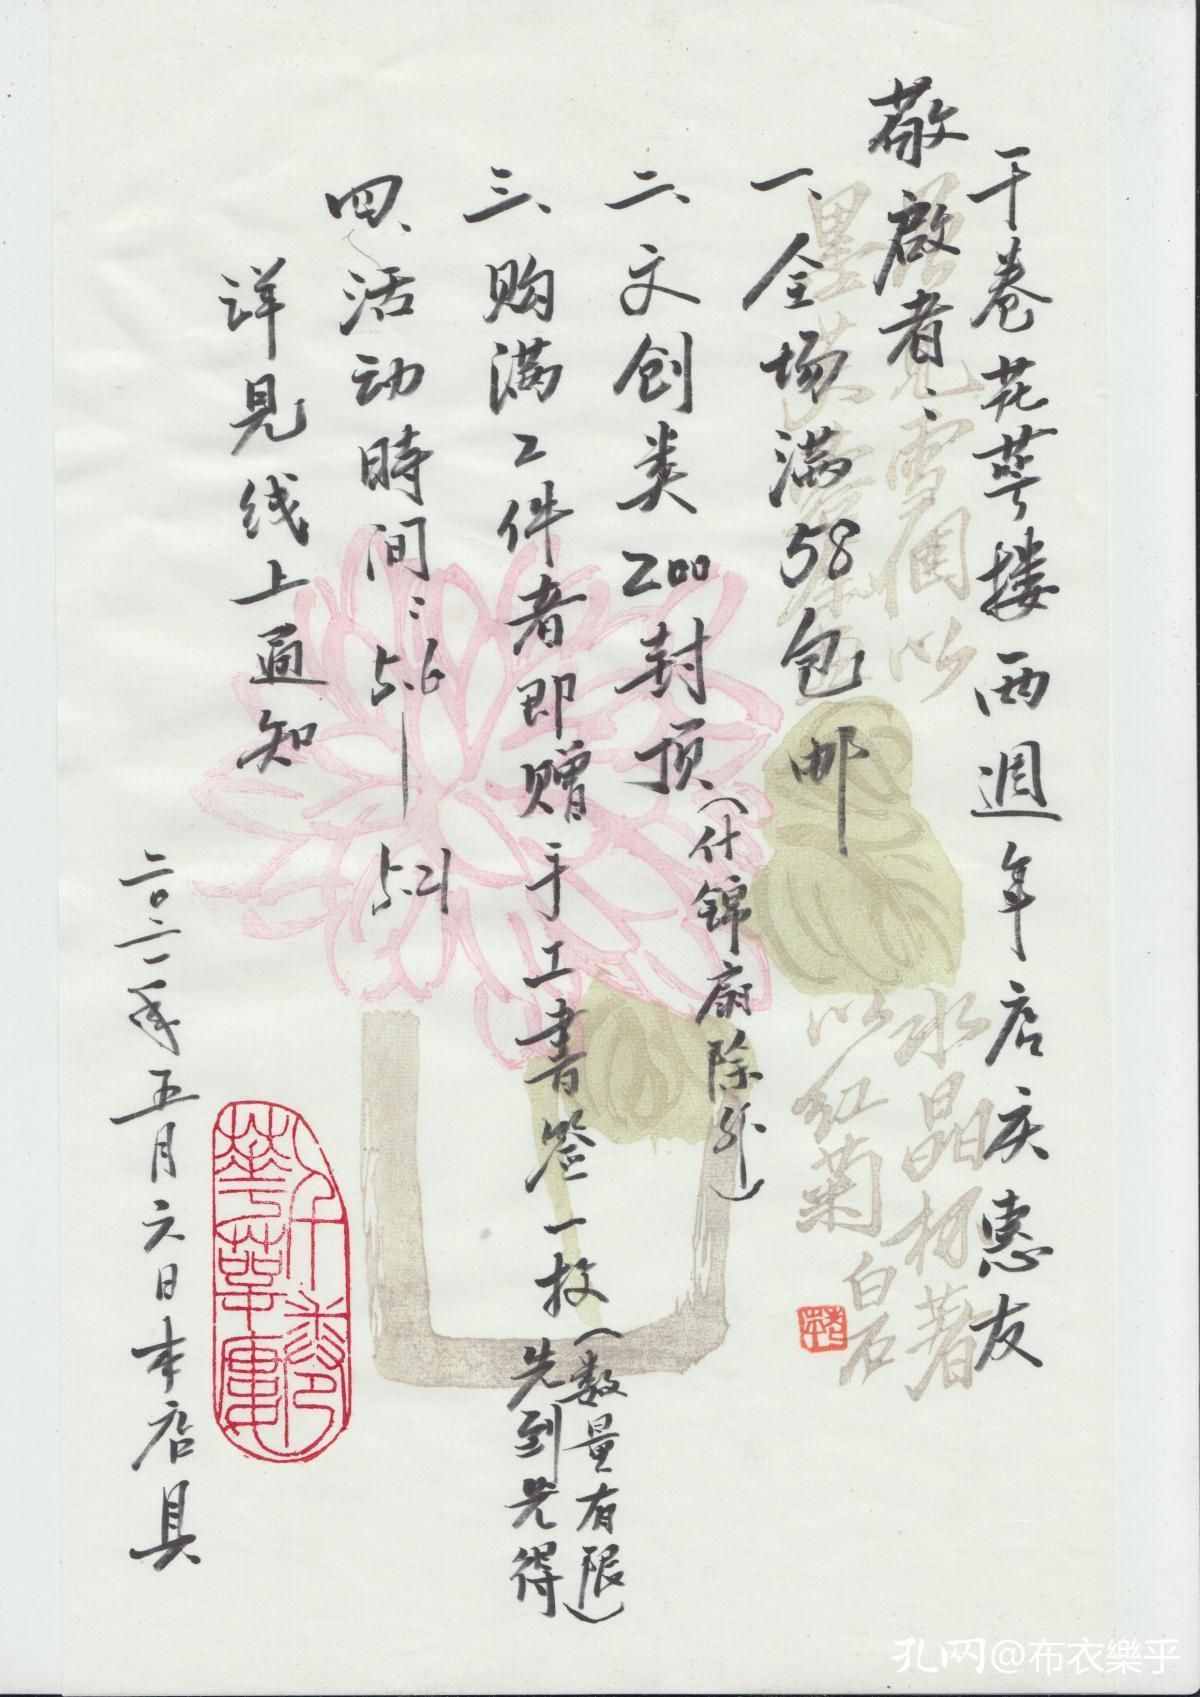 千卷花萼楼两週年店庆惠友
敬啟者：
一、全场满58包邮
二、文创类200封顶（什锦扇除外）
三、购满2件者即赠手工書签一枚（数量有限）
先到先得
四、活动時间：5.6—5.21
详見线上通知
二〇二一年五月六日本店具
水晶杯著
以红菊
白石
孔网@布衣樂乎